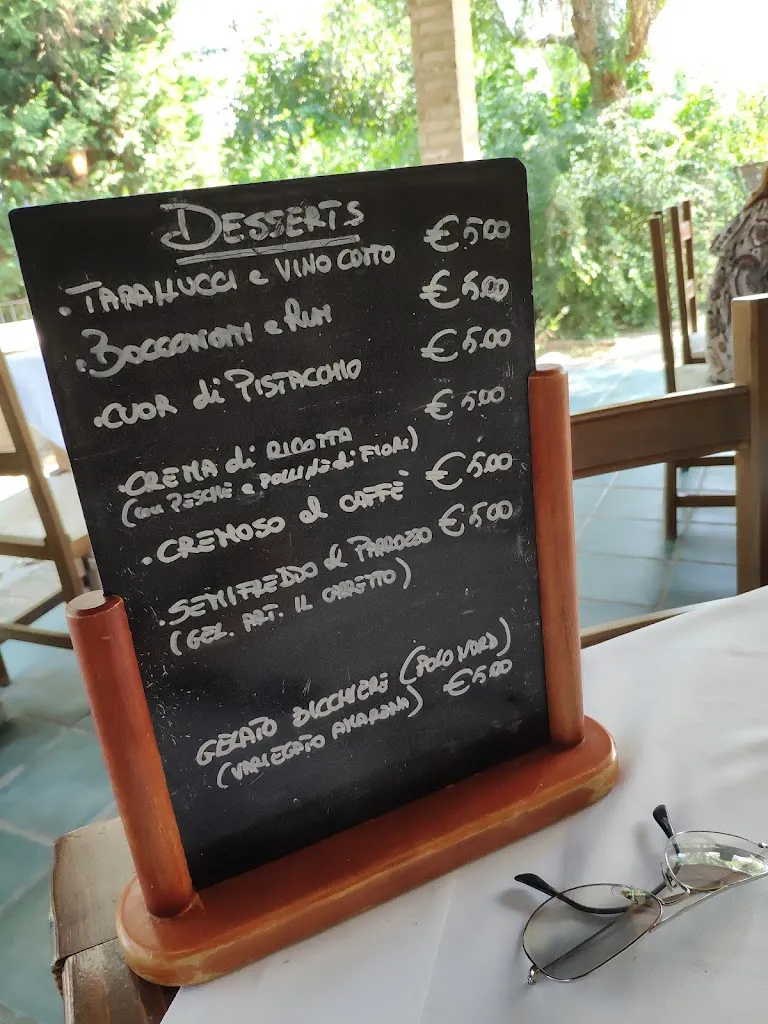 DESSERTS
• TARALLUCCI e VINO COTTO € 5.00
• BOCCONOTTI e RUM € 5.00
• CUOR di PISTACCHIO € 5.00
• CREMA di RICOTTA € 5.00
(CON PESCHE e POLLINE di FIORI)
• CREMOSO al CAFFÈ € 5.00
• SEMIFREDDO al PARROZZO € 5.00
(GEL. ART. IL CARRETTO)
GELATO BICCHIERE (POLO NORD)
(VARIEGATO AMARENA) € 5.00